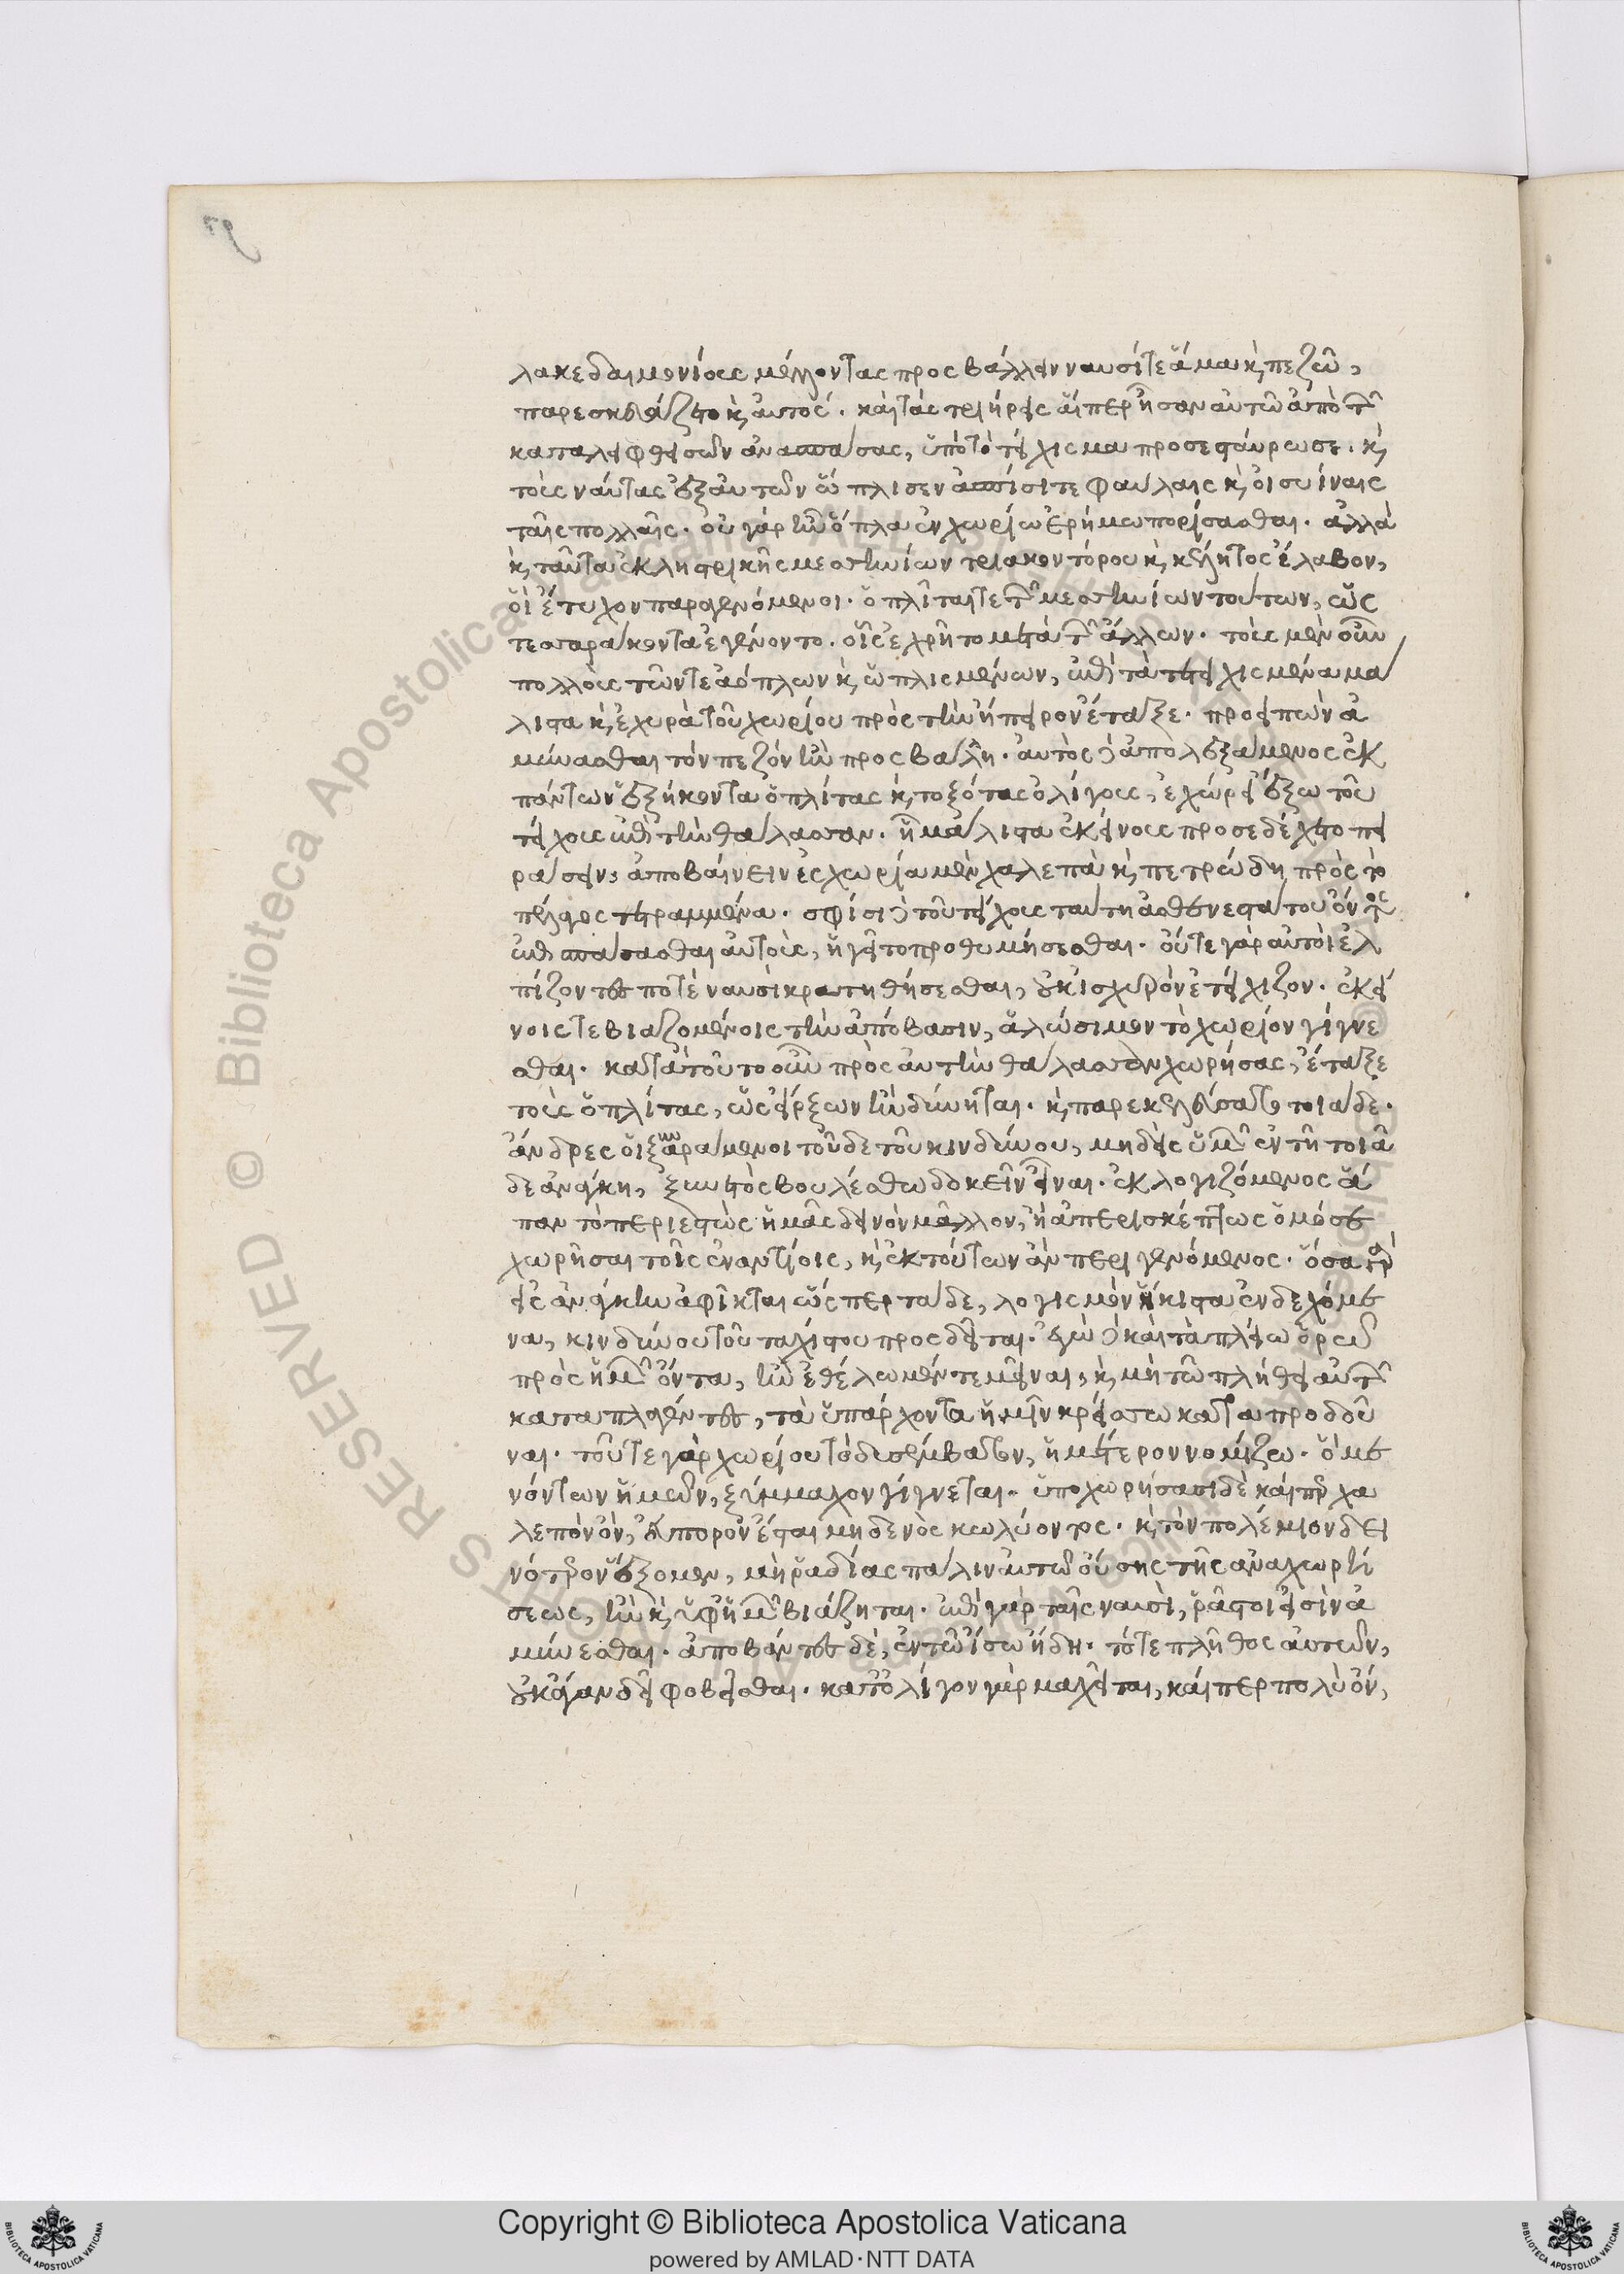 λακεδαιμονίους μέλλοντας προσβάλλειν ναυσί τε ἅμα κ̀ πεζῶ,
παρεσκευάζετο κ̀ αὐτός. καὶ τὰς τριήρεις αἵπερ ἦσαν αὐτῶ ἀπὸ τῶν
καταλειφθεισῶν ἀνασπάσας, ὑπὸ τὸ τείχισμα προσεσταύρωσε. κ̀
τοὺς ναύτας ἐξ αὐτῶν ὥπλισεν ἀσπίσι τε φαύλαις κ̀ οἰσυίναις
ταῖς πολλαῖς. οὐ γὰρ ἦν ὅπλα ἐν χωρίω ἐρήμω πορίσασθαι. ἀλλὰ
κ̀ ταῦτα ἐκ ληστρικῆς μεσσηνίων τριακοντόρου κ̀ κέλητος ἔλαβον,
οἳ ἔτυχον παραγενόμενοι. ὁπλῖται τε τῶν μεσσηνίων τούτων, ὡς
τεσσαράκοντα ἐγένοντο. οἷς ἐχρῆτο μετὰ τῶν ἄλλων. τοὺς μὲν οὖν
πολλοὺς τῶν τε ἀόπλων κ̀ ὡπλισμένων, ἐπὶ τὰ τετειχισμένα μά
λιστα κ̀ ἐχυρὰ τοῦ χωρίου πρὸς τὴν ἤπειρον ἔταξε. προειπὼν ἀ
μύνασθαι τὸν πεζὸν ἢν προσβάλη. αὐτὸς δὲ ἀπολεξάμενος ἐκ
πάντων ἑξήκοντα ὁπλίτας κ̀ τοξότας ὀλίγους, ἐχώρει ἔξω τοῦ
τείχους ἐπὶ τὴν θάλασσαν. ἧ μάλιστα ἐκείνους προσεδέχετο πει
ράσειν ἀποβαίνειν ἐς χωρία μὲν χαλεπὰ κ̀ πετρώδη πρὸς τὸ
πέλαγος τετραμμένα. σφίσι δὲ τοῦ τείχους ταύτη ἀσθενεστάτου ὄντος
ἐπισπάσασθαι αὐτοὺς, ἡγεῖτο προθυμήσεσθαι. οὔτε γὰρ αὐτοὶ ἐλ
πίζοντες ποτὲ ναυσὶ κρατηθήσεσθαι, οὐκ ἰσχυρὸν ἐτείχιζον. ἐκεί
νοις τε βιαζομένοις τὴν ἀπόβασιν, ἁλώσιμον τὸ χωρίον γίγνε
σθαι. κατὰ τοῦτο οὖν πρὸς αὐτὴν θάλασσαν χωρήσας, ἔταξε
τοὺς ὁπλίτας, ὡς εἴρξων ἢν δύνηται. κ̀ παρεκελεύσατο τοιάδε.
ἄνδρες οἱ ξυναράμενοι τοῦδε τοῦ κινδύνου, μηδεὶς ὑμῶν ἐν τῆ τοιᾶ
δε ἀνάγκη, ξυνετὸς βουλέσθω δοκεῖν εἶναι. ἐκλογιζόμενος ἅ
παν τὸ περιεστὼς ἡμᾶς δεινὸν μᾶλλον, ἢ ἀπερισκέπτως ὁμόσε
χωρῆσαι τοῖς ἐναντίοις, κ̀ ἐκ τούτων ἂν περιγενόμενος. ὅσα γὰρ
εἰς ἀνάγκην ἀφῖκται ὥσπερ τάδε, λογισμὸν ἥκιστα ἐνδεχόμε
να, κινδύνου τοῦ ταχίστου προσδεῖται. ἐγὼ δὲ καὶ τὰ πλείω ὁρῶ
πρὸς ἡμῶν ὄντα, ἢν ἐθέλωμέν τε μεῖναι, κ̀ μὴ τῶ πλήθει αὐτῶν
καταπλαγέντες, τὰ ὑπάρχοντα ἡμῖν κρείσσω καταπροδοῦ
ναι. τοῦ τε γὰρ χωρίου τὸ δυσέμβατον, ἡμέτερον νομίζω. ὃ με
νόντων ἡμῶν, ξύμμαχον γίγνεται. ὑποχωρήσασι δὲ καίπερ χα
λεπὸν ὂν, εὔπορον ἔσται μηδενὸς κωλύοντος. κ̀ τὸν πολέμιον δει
νότερον ἕξομεν, μὴ ῥαδίας πάλιν αὐτῶ οὔσης τῆς ἀναχωρή
σεως, ἢν κ̀ ὑφ' ἡμῶν βιάζηται. ἐπὶ γὰρ ταῖς ναυσὶ, ῥᾶστοι εἰσὶν ἀ
μύνεσθαι. ἀποβάντες δὲ, ἐν τῶ ἴσω ἤδη. τό τε πλῆθος αὐτῶν,
οὐκ ἄγαν δεῖ φοβεῖσθαι. κατ' ὀλίγον γὰρ μαχεῖται, καίπερ πολὺ ὂν,
Copyright © Biblioteca Apostolica Vaticana
powered by AMLAD·NTT DATA